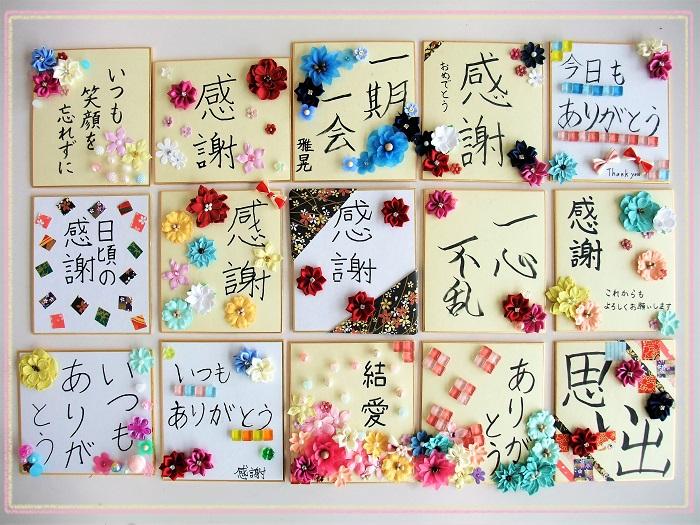 いつも
笑顔を
忘れずに
感謝
一期
一会
雅晃
感謝
おめでとう
今日も
ありがとう
Thank you
日頃の
感謝
感謝
感謝
一心
不乱
感謝
これからも
よろしくお願いします
いつも
ありが
とう
いつも
ありがとう
感謝
結愛
ありが
とう
思い出